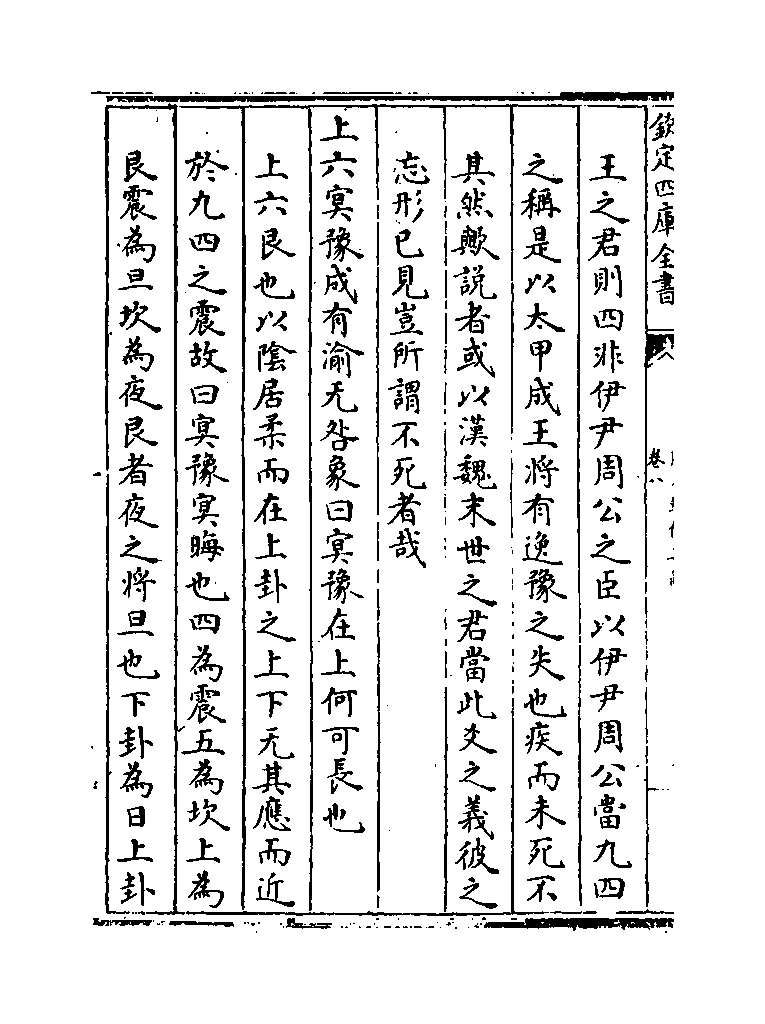 欽定四庫全書
卷八
王之君則四非伊尹周公之臣以伊尹周公當九四
之稱是以太甲成王將有逸豫之失也疾而未死不
其然歟說者或以漢魏末世之君當此爻之義彼之
忘形已見豈所謂不死者哉
上六冥豫成有渝无咎象曰冥豫在上何可長也
上六艮也以陰居柔而在上卦之上下无其應而近
於九四之震故曰冥豫冥晦也四為震五為坎上為
艮震為旦坎為夜艮者夜之將旦也下卦為日上卦